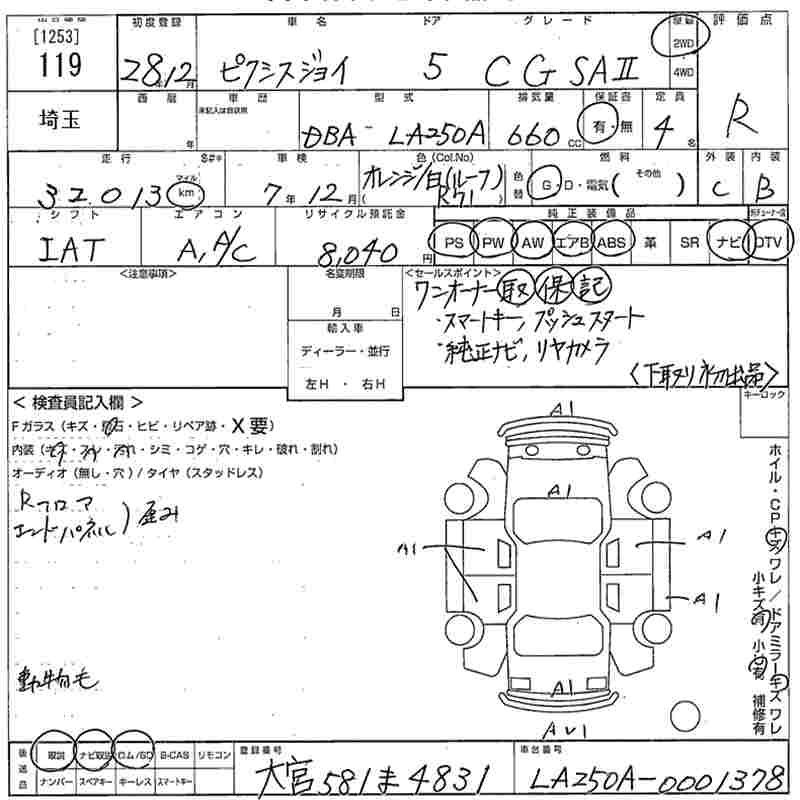 出品番号 初度登録 車名 ドア グレード 駆動 評価点
[1253] 119 28年12月 ピクシスジョイ 5 C G SAⅡ 2WD 4WD R
埼玉 西暦 年 車歴 未記入は自家用 型式 DBA-LA250A 排気量 660cc 保証書 有・無 定員 4名
走行 マイル km 32,013 車検 7年12月 色(Col.No) オレンジ/白(ルーフ) R71 色替 燃料 G・D・電気( その他 ) 外装 C 内装 B
シフト IAT エアコン A,A/C リサイクル預託金 8,040円 純正装備品 PS PW AW エアB ABS 革 SR ナビ DTV
<注意事項> 名変期限 月 日 <セールスポイント>
ワンオーナー 取 保 記
・スマートキー, プッシュスタート
輸入車
ディーラー・並行 ・純正ナビ, リヤカメラ
左H・右H 〈下取り初出品〉
キーロック
<検査員記入欄>
Fガラス(キズ・飛石・ヒビ・リペア跡・X要)
内装(キズ・スレ・汚れ・シミ・コゲ・穴・キレ・破れ・割れ)
オーディオ(無し・穴)/タイヤ(スタッドレス)
Rフロア
エンドパネル ) 歪み
動物毛
A1
A1
A1 A1
A1
A1
AU1
ホイル・CPキズワレ/ドアミラーキズワレ
小キズ有 小凹有 補修有
後送品 取説 ナビ取説 ロム/SD B-CAS リモコン
ナンバー スペアキー キーレス スマートキー
登録番号 大宮581ま4831 車台番号 LA250A-0001378